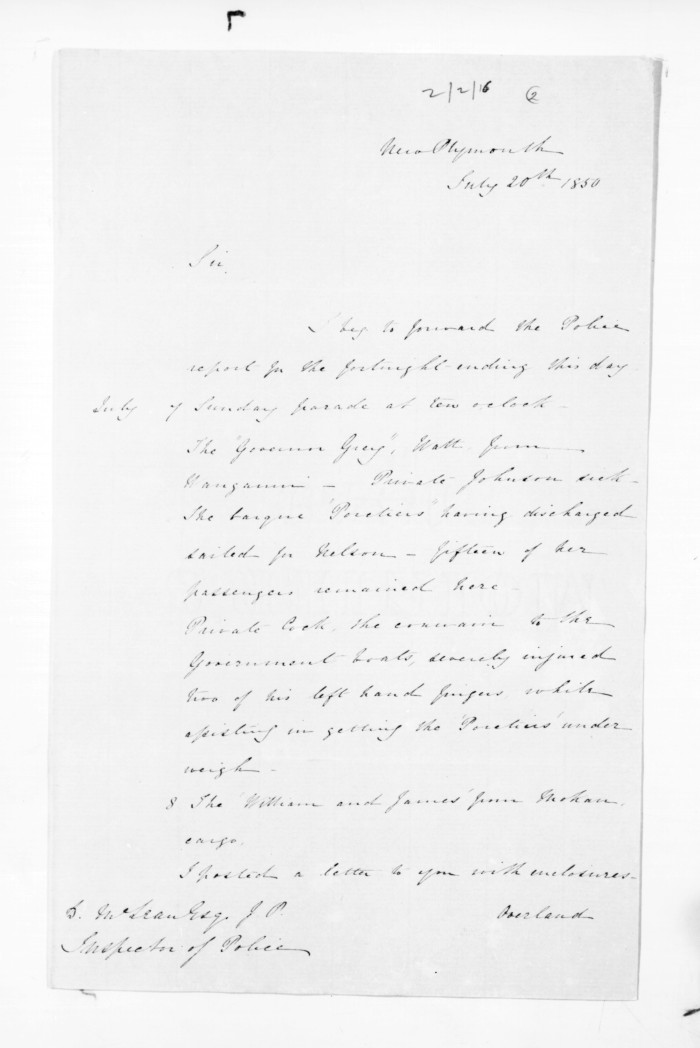 2/2/16 2
New Plymouth
July 20th 1850
Sir,
I beg to forward the Police
report for the fortnight ending this day
July 7 Sunday parade at ten oclock -
The "Governor Grey", Watt from
Wanganui - Private Johnson sick -
The barque having discharged
sailed for Nelson - fifteen of her
passengers remained here -
Private Cock, the coxwain to the
Government boats, severely injured
two of his left hand fingers while
assisting in getting the under
weigh -
8 The 'William and James' from
cargo.
I posted a letter to you with enclosures -
D. McLean Esq. J P. Overland
Inspector of Police